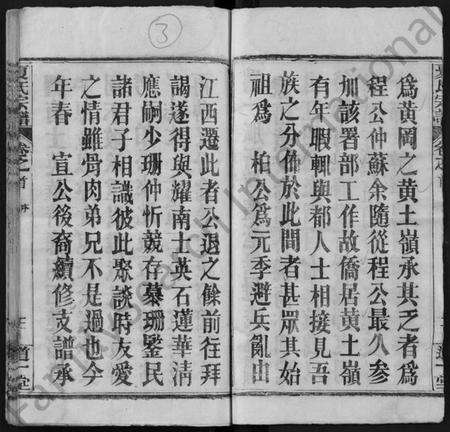 ③
為黃岡之黃土嶺承其乏者為
程公仲蘇余隨從程公最久參
加該署部工作故僑居黃土嶺
有年暇輒與都人士相接見吾
族之分佈於此間者甚眾其始
祖為 柏公為元季避兵亂由
江西遷此者公退之餘前往拜
謁遂得與耀南士英石蓮華清
應嗣少珊仲忻競存慕珊鑒民
諸君子相識彼此聚談時友愛
之情雖骨肉弟兄不是過也今
年春 宣公後裔續修支譜承
氏宗譜 卷之首
道一堂
氏宗譜 卷之首
道一堂
FamilySearch International